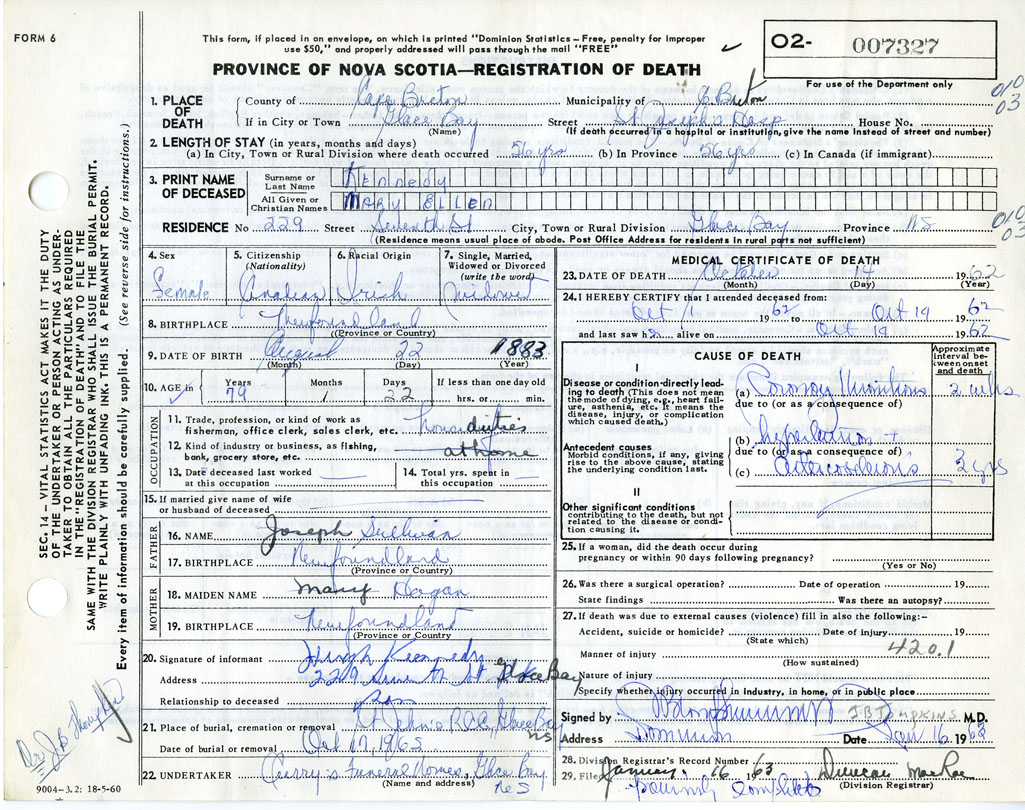 FORM 6
This form, if placed in an envelope, on which is printed "Dominion Statistics – Free, penalty for improper
use $50," and properly addressed will pass through the mail "FREE"
O2- 007327
For use of the Department only
PROVINCE OF NOVA SCOTIA—REGISTRATION OF DEATH
010
03
1. PLACE OF DEATH
County of Cape Breton Municipality of C. Breton
If in City or Town Glace Bay Street St Joseph's Hosp House No.
(Name) (If death occurred in a hospital or institution, give the name instead of street and number)
2. LENGTH OF STAY (in years, months and days)
(a) In City, Town or Rural Division where death occurred 56 yrs (b) In Province 56 yrs (c) In Canada (if immigrant)
3. PRINT NAME OF DECEASED
Surname or Last Name Kennedy
All Given or Christian Names MARY ELLEN
010
03
RESIDENCE No 229 Street Seventh St City, Town or Rural Division Glace Bay Province NS
(Residence means usual place of abode. Post Office Address for residents in rural parts not sufficient)
4. Sex
Female
5. Citizenship
(Nationality)
Canadian
6. Racial Origin
Irish
7. Single, Married,
Widowed or Divorced
(write the word)
Widowed
8. BIRTHPLACE Newfoundland
(Province or Country)
9. DATE OF BIRTH August 22 1883
(Month) (Day) (Year)
10. AGE in Years 79 Months 1 Days 22 If less than one day old
hrs. or min.
OCCUPATION
11. Trade, profession, or kind of work as
fisherman, office clerk, sales clerk, etc. house duties
12. Kind of industry or business, as fishing,
bank, grocery store, etc. at home
13. Date deceased last worked
at this occupation
14. Total yrs. spent in
this occupation
15. If married give name of wife
or husband of deceased
FATHER
16. NAME Joseph Sullivan
17. BIRTHPLACE Newfoundland
(Province or Country)
MOTHER
18. MAIDEN NAME Mary Hogan
19. BIRTHPLACE Newfoundland
(Province or Country)
20. Signature of informant Hugh Kennedy
Address 229 Seventh St Glace Bay
Relationship to deceased Son
21. Place of burial, cremation or removal St John's R.C.C. Glace Bay
NS
Date of burial or removal Oct 17, 1962
22. UNDERTAKER Curry's Funeral Homes, Glace Bay
(Name and address) NS
9004–3.2: 18-5-60
MEDICAL CERTIFICATE OF DEATH
23. DATE OF DEATH October 14 1962
(Month) (Day) (Year)
24. I HEREBY CERTIFY that I attended deceased from:
Oct 1 1962 to Oct 19 1962
and last saw h alive on Oct 19 1962
CAUSE OF DEATH
Approximate interval between onset and death
I
Disease or condition directly leading to death (This does not mean the mode of dying, e.g., heart failure, asthenia, etc. It means the disease, injury, or complication which caused death.)
(a) Coronary thrombosis 2 wks
due to (or as a consequence of)
Antecedent causes
Morbid conditions, if any, giving rise to the above cause, stating the underlying condition last.
(b) hypertension +
due to (or as a consequence of)
(c) arteriosclerosis 2 yrs
II
Other significant conditions
contributing to the death, but not related to the disease condition causing it.
25. If a woman, did the death occur during
pregnancy or within 90 days following pregnancy?
(Yes or No)
26. Was there a surgical operation? Date of operation 19
State findings Was there an autopsy?
27. If death was due to external causes (violence) fill in also the following:–
Accident, suicide or homicide? Date of injury 19
(State which)
Manner of injury 420.1
(How sustained)
Nature of injury
Specify whether injury occurred in Industry, in home, or in public place
Signed by JB TOMPKINS M.D.
Address Dominion Date Jan 16 1963
28. Division Registrar's Record Number
29. Filed January 16 1963 Duncan MacRae
(Division Registrar)
SEC. 14 – VITAL STATISTICS ACT MAKES IT THE DUTY
OF THE UNDERTAKER OR PERSON ACTING AS UNDER-
TAKER TO OBTAIN ALL THE PARTICULARS REQUIRED
IN THE "REGISTRATION OF DEATH" AND TO FILE THE
SAME WITH THE DIVISION REGISTRAR WHO SHALL ISSUE THE BURIAL PERMIT.
WRITE PLAINLY WITH UNFADING INK. THIS IS A PERMANENT RECORD.
Every item of information should be carefully supplied. (See reverse side for instructions.)